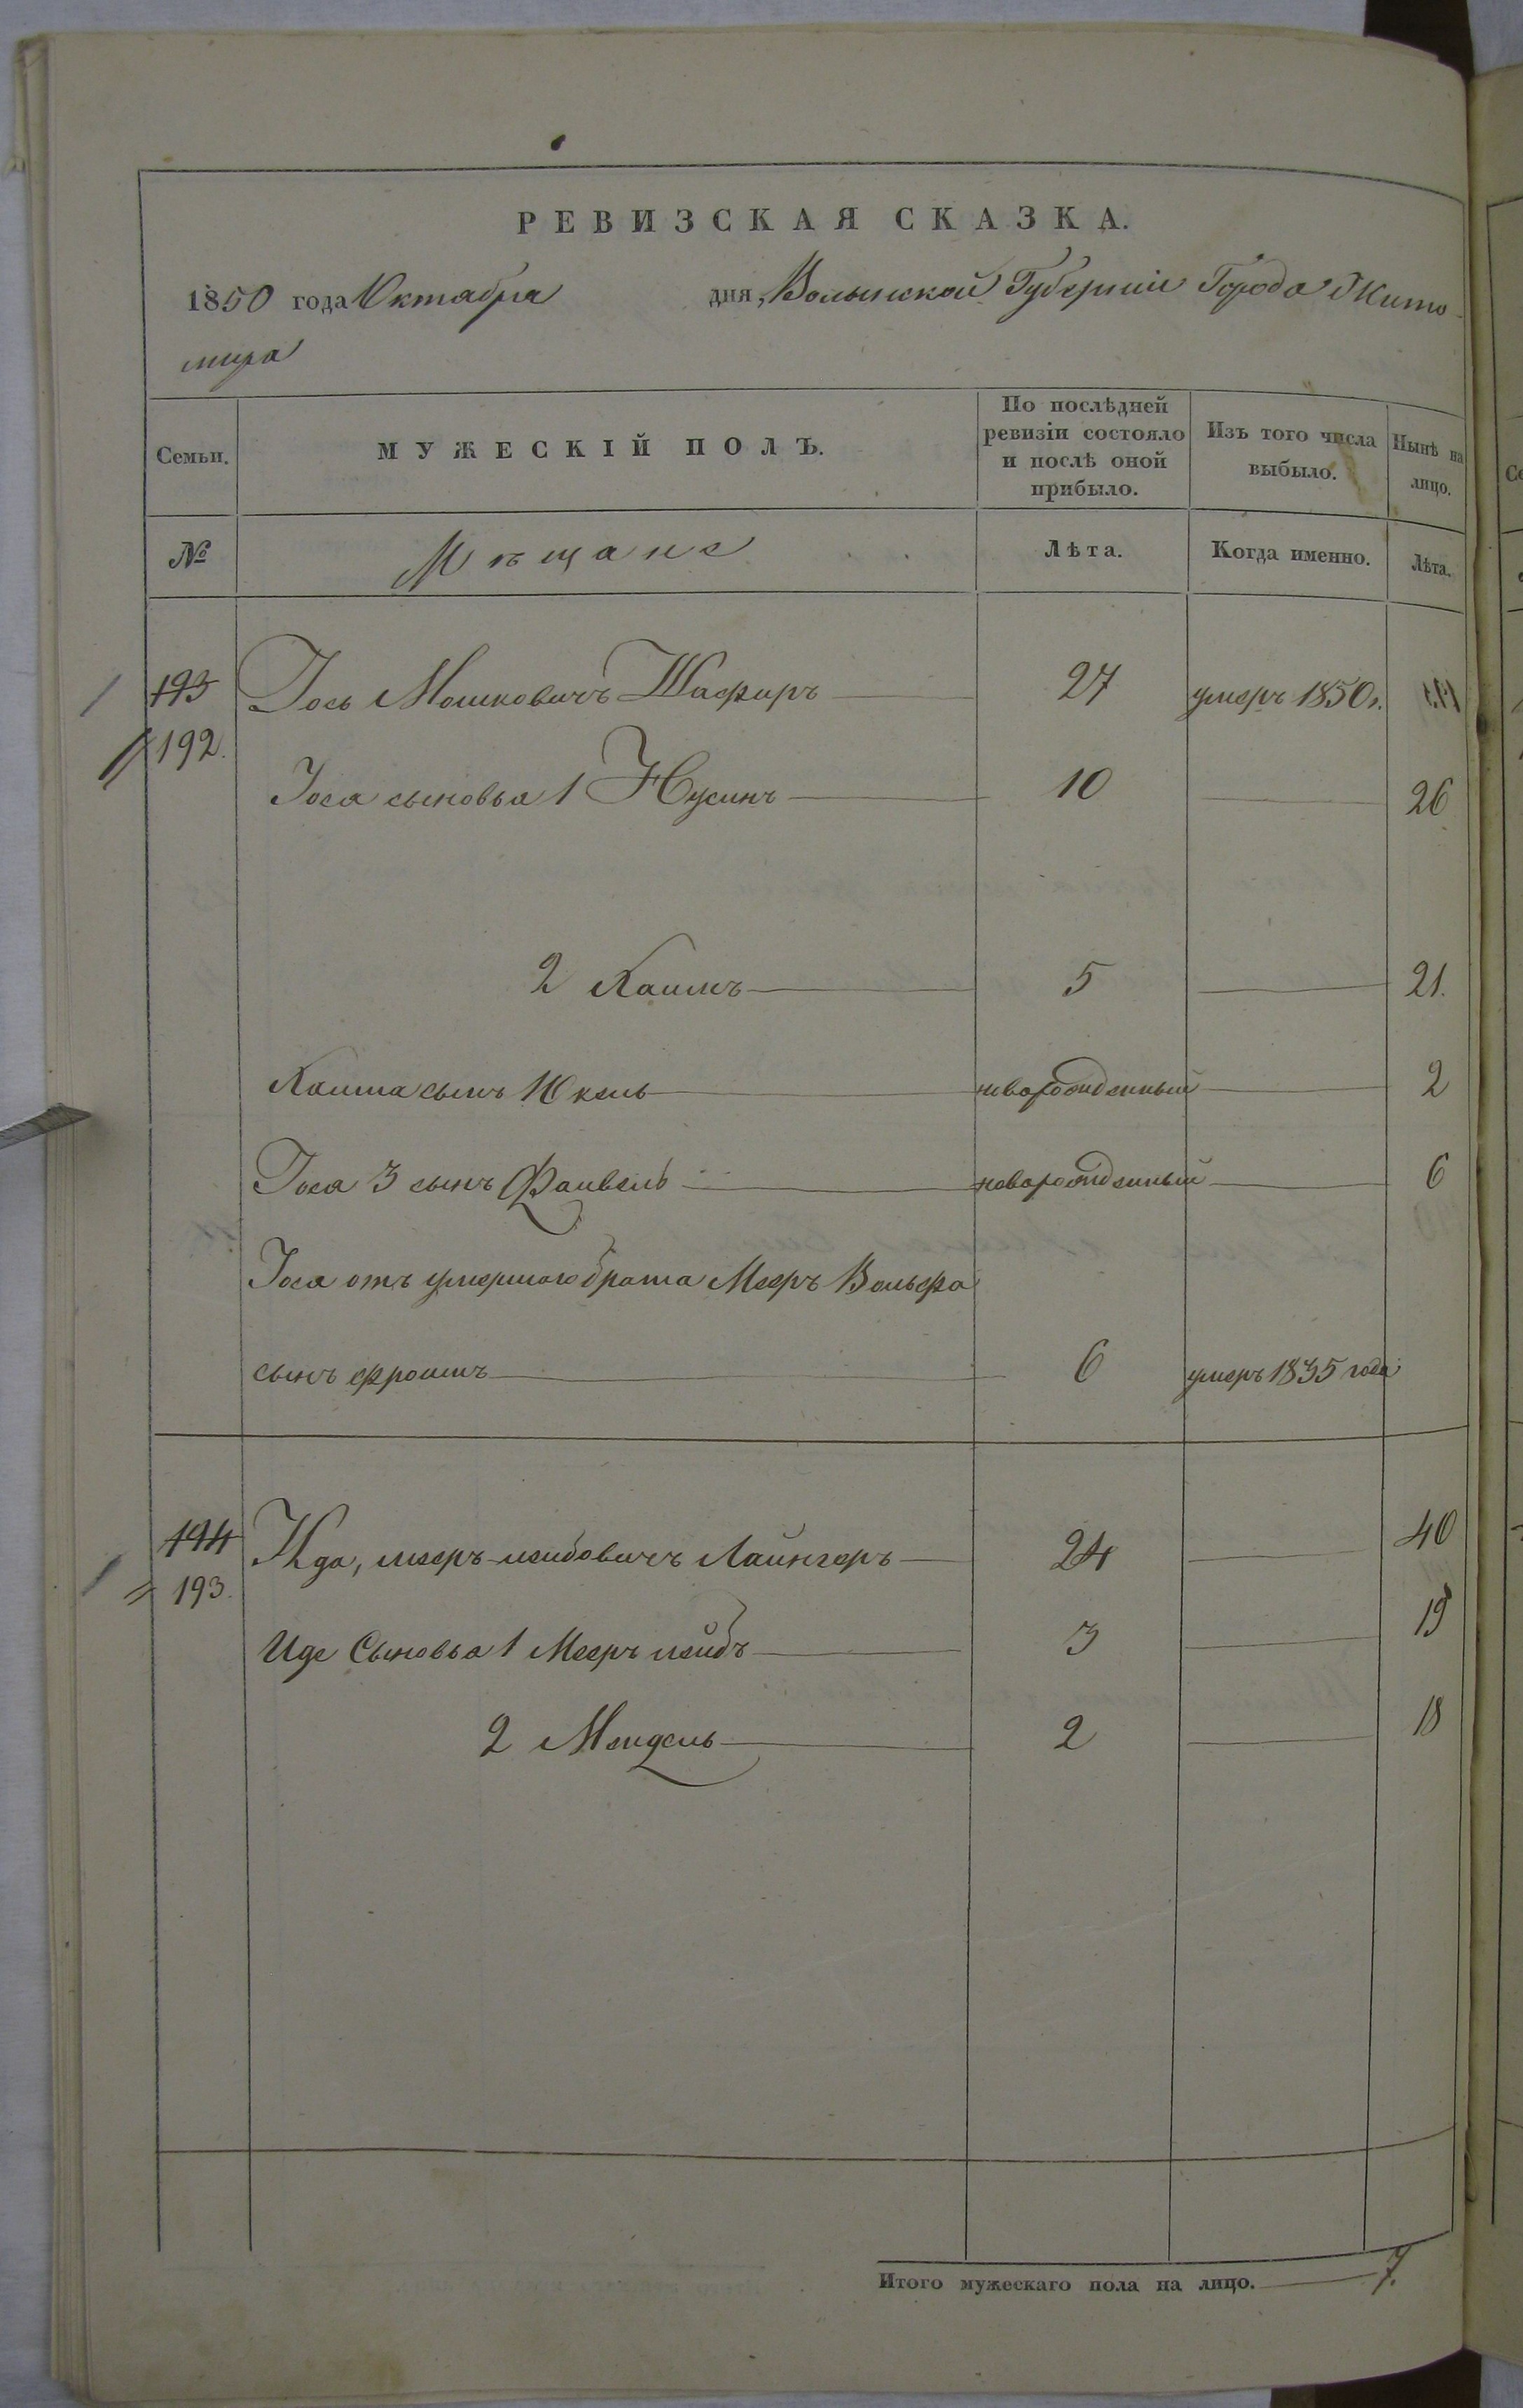 РЕВИЗСКАЯ СКАЗКА.
1850 года Октября дня, Волынской Губерніи Города Жито-
мира
Семьи. МУЖЕСКІЙ ПОЛЪ. По послѣдней ревизіи состояло и послѣ оной прибыло. Изъ того числа выбыло. Нынѣ на лицо.
№ Мѣщане Лѣта. Когда именно. Лѣта.
193 Іось Мошковичъ Шафиръ 27 умеръ 1850 г.
192. Іося сыновья 1 Нусинъ 10 26
2 Хаимъ 5 21.
Хаима сынъ Юкель новорожденный 2
Іося 3 сынъ Фаивель новорожденный 6
Іося отъ умершаго брата Мееръ Вольфа
сынъ Фроимъ 6 умеръ 1835 года
194 Ида, мееръ-лейбовичъ Лайнгеръ 24 40
193.
Иде Сыновья 1 Мееръ лейбъ 3 19
2 Мендель 2 18
Итого мужескаго пола на лицо. 7.